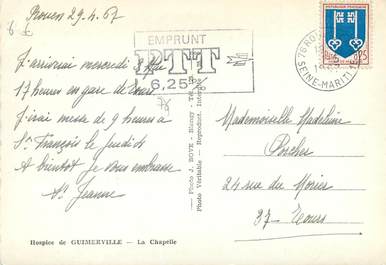 Rouen 29.4.67
J'arriverai mercredi 3 Mai
17 heures en gare de Tours
J'irai messe de 9 heures à
St François le jeudi 4
A bientôt je vous embrasse
Sr Jeanne
EMPRUNT
PTT
6,25%
SEINE-MARITIME
Mademoiselle Madeleine
Porcher
24 rue du Mûrier
37 - Tours
Photo J. BOYE - Blangy - Tél.
Photo Véritable - Reproduct. Interd.
Hospice de GUIMERVILLE — La Chapelle